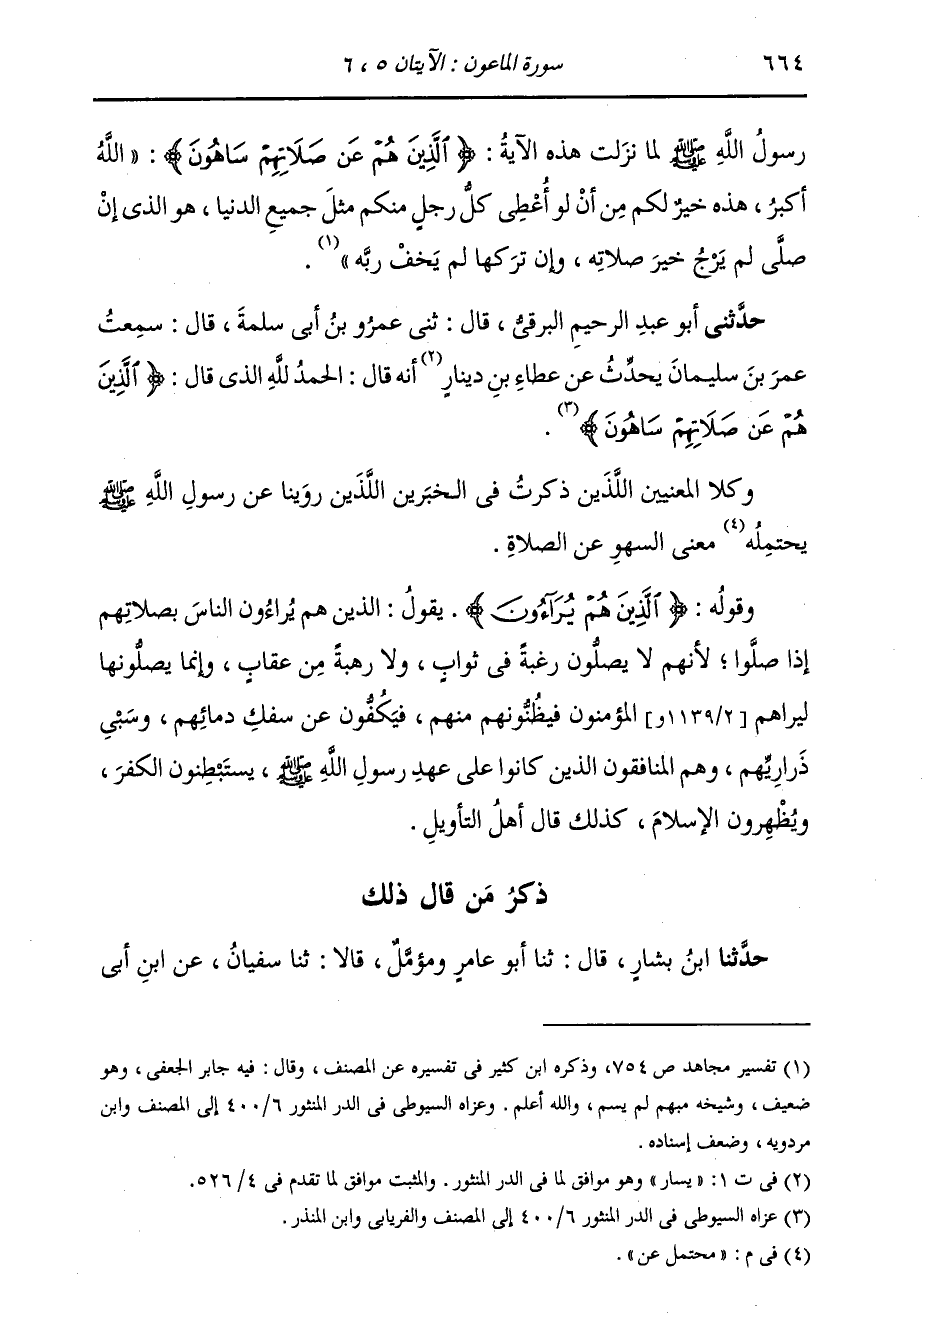 ٦٦٤ سورة الماعون : الآيتان ٥ ، ٦
رسولُ اللَّهِ ﷺ لما نزَلت هذه الآيةُ : ﴿ ٱلَّذِينَ هُمْ عَن صَلَاتِهِمْ سَاهُونَ ﴾ : « اللَّهُ
أكبرُ ، هذه خيرٌ لكم مِن أنْ لو أُعْطِى كلُّ رجلٍ منكم مثلَ جميعِ الدنيا ، هو الذى إنْ
صلَّى لم يَرْجُ خيرَ صلاتِه ، وإن ترَكها لم يَخفْ ربَّه »(١) .
حدَّثنى أبو عبدِ الرحيمِ البرقىُّ ، قال : ثنى عمرُو بنُ أبى سلمةَ ، قال : سمِعتُ
عمرَ بنَ سليمانَ يحدِّثُ عن عطاءِ بنِ دينارٍ(٢) أنه قال : الحمدُ للَّهِ الذى قال : ﴿ ٱلَّذِينَ
هُمْ عَن صَلَاتِهِمْ سَاهُونَ ﴾(٣) .
وكلا المعنيين اللَّذَين ذكرتُ فى الخبَرين اللَّذَين روَينا عن رسولِ اللَّهِ ﷺ
يحتمِلُه(٤) معنى السهوِ عن الصلاةِ .
وقولُه : ﴿ ٱلَّذِينَ هُمْ يُرَآءُونَ ﴾ . يقولُ : الذين هم يُراءُون الناسَ بصلاتِهم
إذا صلَّوا ؛ لأنهم لا يصلُّون رغبةً فى ثوابٍ ، ولا رهبةً مِن عقابٍ ، وإنما يصلُّونها
ليراهم [١١٣٩/٢و] المؤمنون فيظُنُّونهم منهم ، فيَكُفُّون عن سفكِ دمائِهم ، وسَبْىِ
ذَرارِيِّهم ، وهم المنافقون الذين كانوا على عهدِ رسولِ اللَّهِ ﷺ ، يستَبْطِنون الكفرَ ،
ويُظْهِرون الإسلامَ ، كذلك قال أهلُ التأويلِ .
ذكرُ مَن قال ذلك
حدَّثنا ابنُ بشارٍ ، قال : ثنا أبو عامرٍ ومؤمَّلٌ ، قالا : ثنا سفيانُ ، عن ابنِ أبى
(١) تفسير مجاهد ص ٧٥٤، وذكره ابن كثير فى تفسيره عن المصنف ، وقال : فيه جابر الجعفى ، وهو
ضعيف ، وشيخه مبهم لم يسم ، والله أعلم . وعزاه السيوطى فى الدر المنثور ٤٠٠/٦ إلى المصنف وابن
مردويه ، وضعف إسناده .
(٢) فى ت ١: « يسار» وهو موافق لما فى الدر المنثور . والمثبت موافق لما تقدم فى ٤/ ٥٢٦.
(٣) عزاه السيوطى فى الدر المنثور ٤٠٠/٦ إلى المصنف والفريابى وابن المنذر .
(٤) فى م : « محتمل عن» .